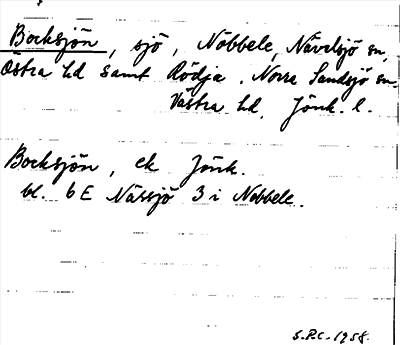 Bocksjön, sjö, Nöbbele, Nävelsjö sn,
Östra hd samt Rödja, Norra Sandsjö sn.
Västra hd, Jönk. l.
Bocksjön, ek Jönk.
bl. 6 E Nässjö 3 i Nobbele.
S.P.C. 1958.